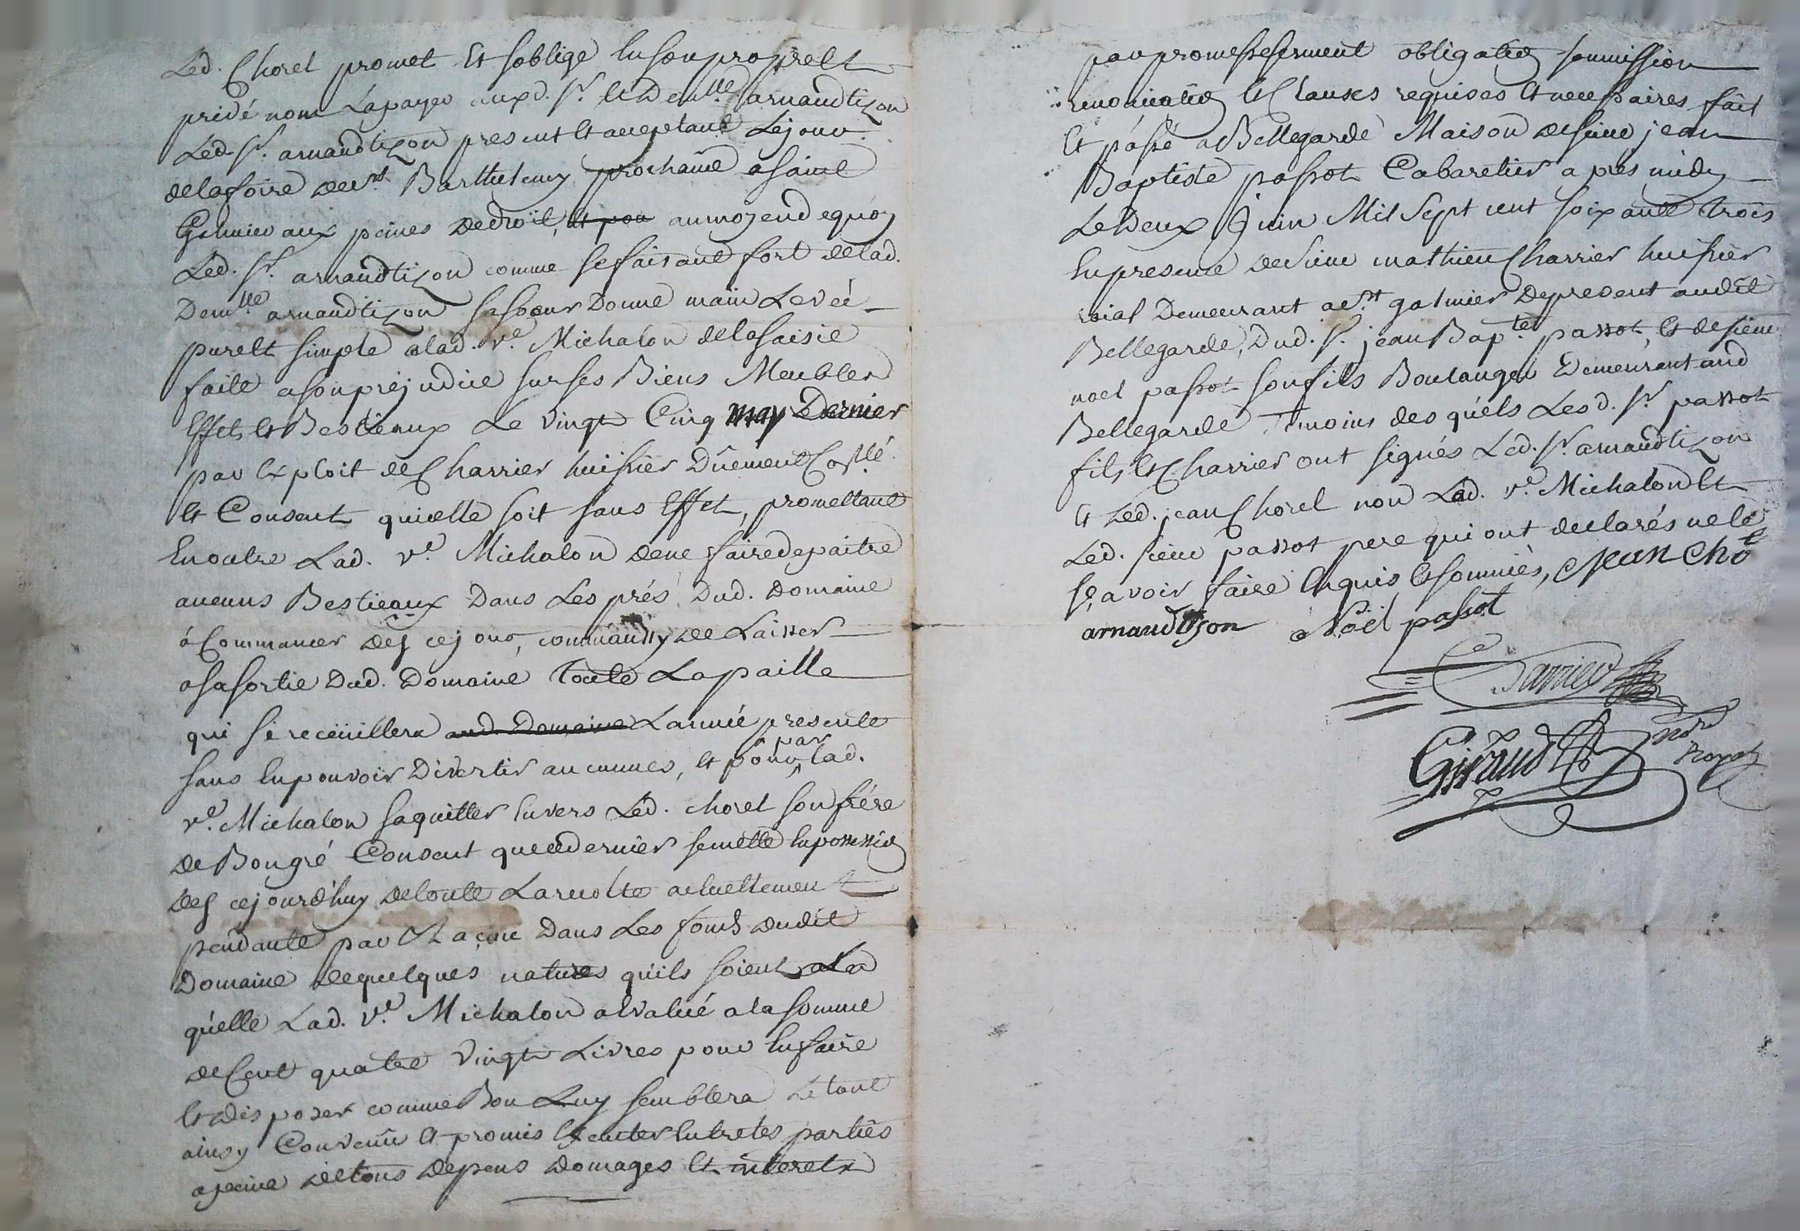 Led. Chorel promet Et soblige En son propre Et
privé nom La payer auxd. Sr. et Demlle arnaudtizon
Led. Sr. arnaudtizon present Et acceptant Le jour
de la foire de St. Barthelemy prochaine a saint
Galmier aux peines de droit, et pou au moyen de quoy
Led. Sr. arnaudtizon comme se faisant fort de lad.
Demlle arnaudtizon sa soeur Donne main Levée
pure Et simple a lad. ve. Michalon de la saisie
faite a son préjudice sur ses Biens Meubles
Effets et Bestieaux Le vingt Cinq may Dernier
par Exploit de Charrier huissier Dûement Coñlé.
Et Consent qu'icelle soit sans Effet, promettant
En outre Lad. ve. Michalon de ne faire depaitre
aucuns Bestieaux Dans Les prés Dud. Domaine
à Commancer des ce jour, comm'aussy de Laisser
a sa sortie Dud. Domaine Toute La paille
qui se receüillera aud. Domaine L'année presente
sans En pouvoir Divertir aucunnes, et pour par lad.
ve. Michalon saquitter Envers Led. chorel son frére
de Bon gré Consent que ce dernier se mette En possession
des cejourd'huy de toute La recolte actuellement
pendante par Racine Dans Les fonds dudit
Domaine de quelques natures qu'ils soient, a la
quelle Lad. ve. Michalon a Evalué a la somme
de Cent quatre vingt Livres pour En faire
Et disposer comme Bon Luy semblera Le tout
ainsy Convenû Et promis Executer Entre les parties
a peine de tous depens domages Et interets
par promesse serment obligation soumission
renonciation Et Clauses requises Et necessaires, fait
Et passé a Bellegarde Maison de sieur jean
Baptiste passot Cabaretier a près midy
Le Deux Juin Mil Sept cent soixante trois
En presence de Sieur mathieu Charrier huissier
roial Demeurant a St galmier de present audit
Bellegarde, Dud. Sr. jean Bapte. passot, et de sieur
noel passot son fils Boulanger Demeurant aud
Bellegarde Temoins des quels Lesd. Srs passot
fils, et Charrier ont signés Led. Sr. arnaudtizon
Et Led. jean Chorel non Lad. ve. Michalon Et
Led. sieur passot pere qui ont declarés ne le
sçavoir faire Enquis Et sommés, Jean Chorel
arnaudtizon Noël passot
Charrier
Giraud Nore
Royal